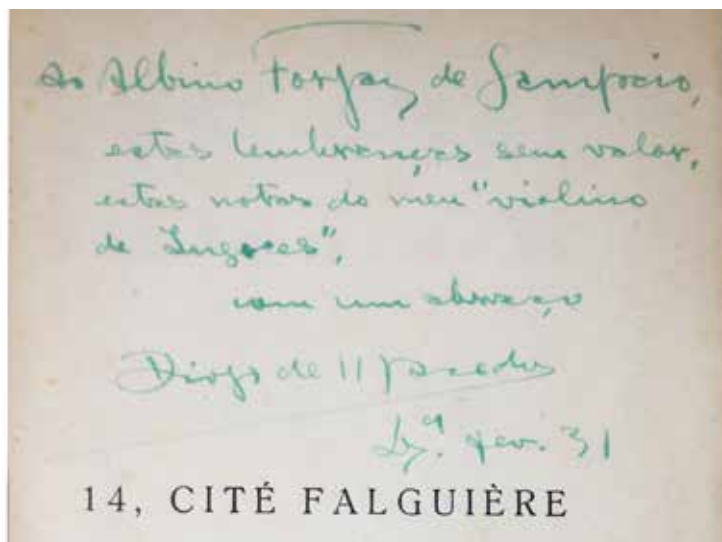 Ao Albino Forjaz de Sampaio,
estas lembranças sem valor,
estas notas do meu "violino
de Ingres",
com um abraço
Diogo de Macedo
Lx.ª fev. 31
14, CITÉ FALGUIÈRE